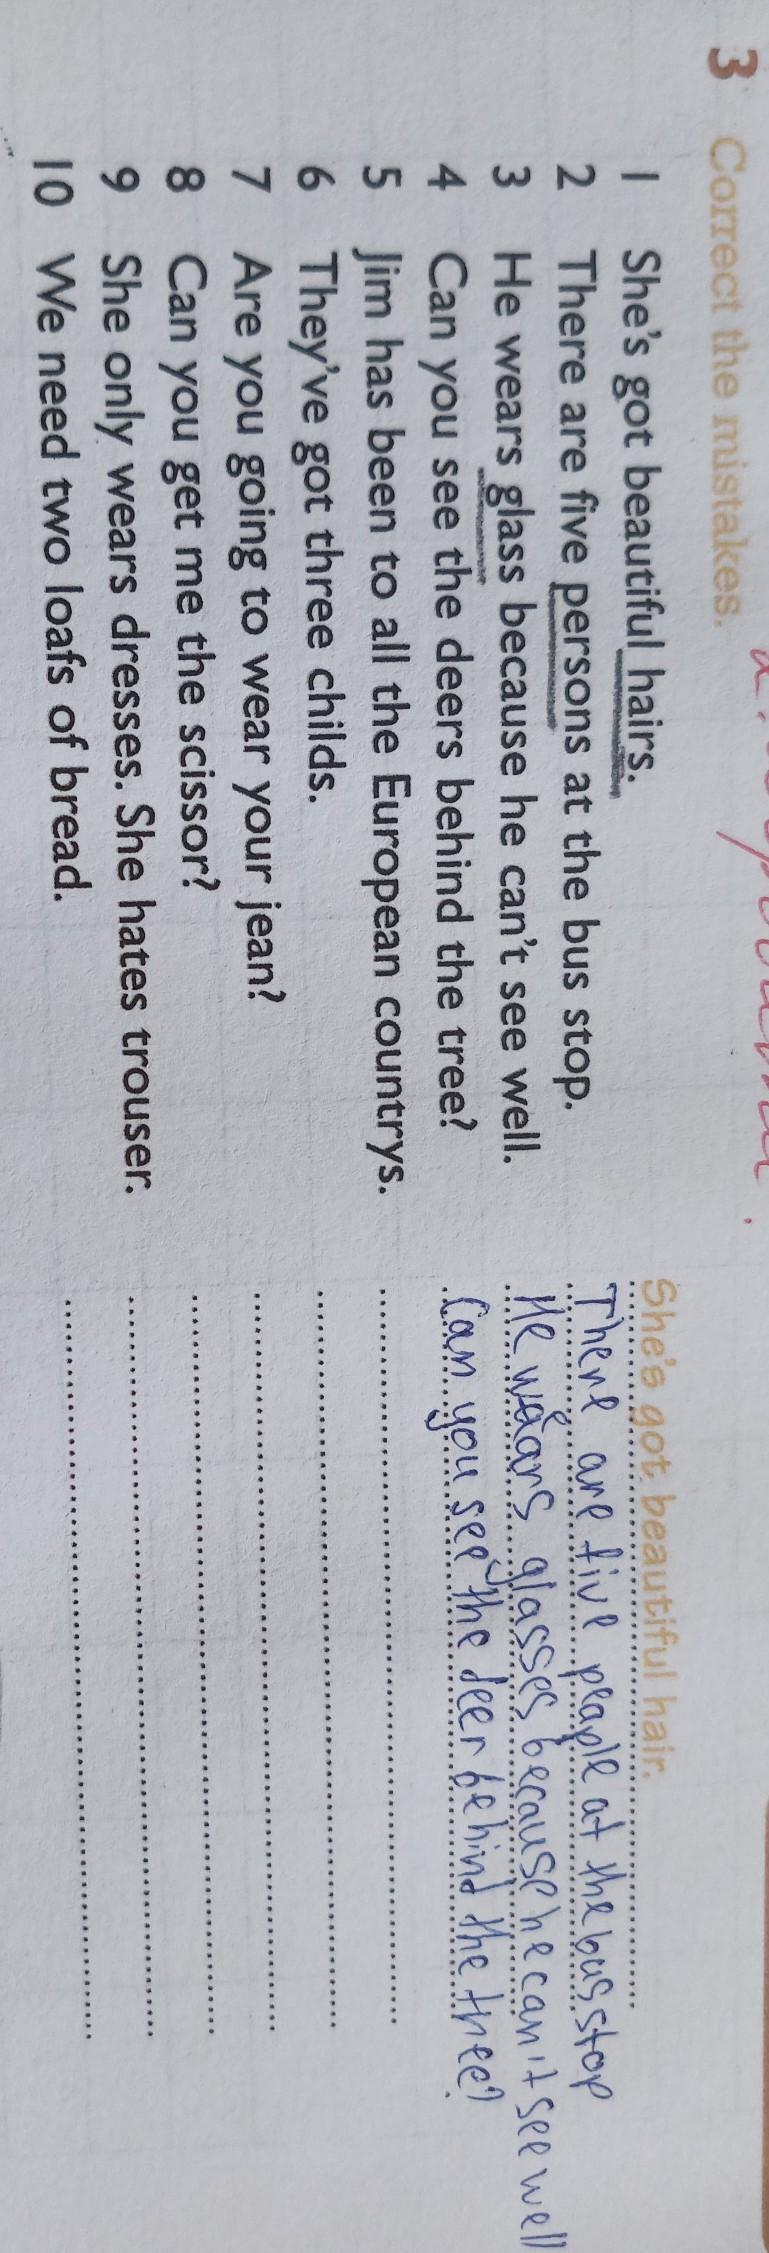 3 Correct the mistakes.
1 She's got beautiful hairs. She's got beautiful hair.
2 There are five persons at the bus stop. There are five people at the bus stop
3 He wears glass because he can't see well. He wears glasses because he can't see well
4 Can you see the deers behind the tree? Can you see the deer behind the tree?
5 Jim has been to all the European countrys.
6 They've got three childs.
7 Are you going to wear your jean?
8 Can you get me the scissor?
9 She only wears dresses. She hates trouser.
10 We need two loafs of bread.